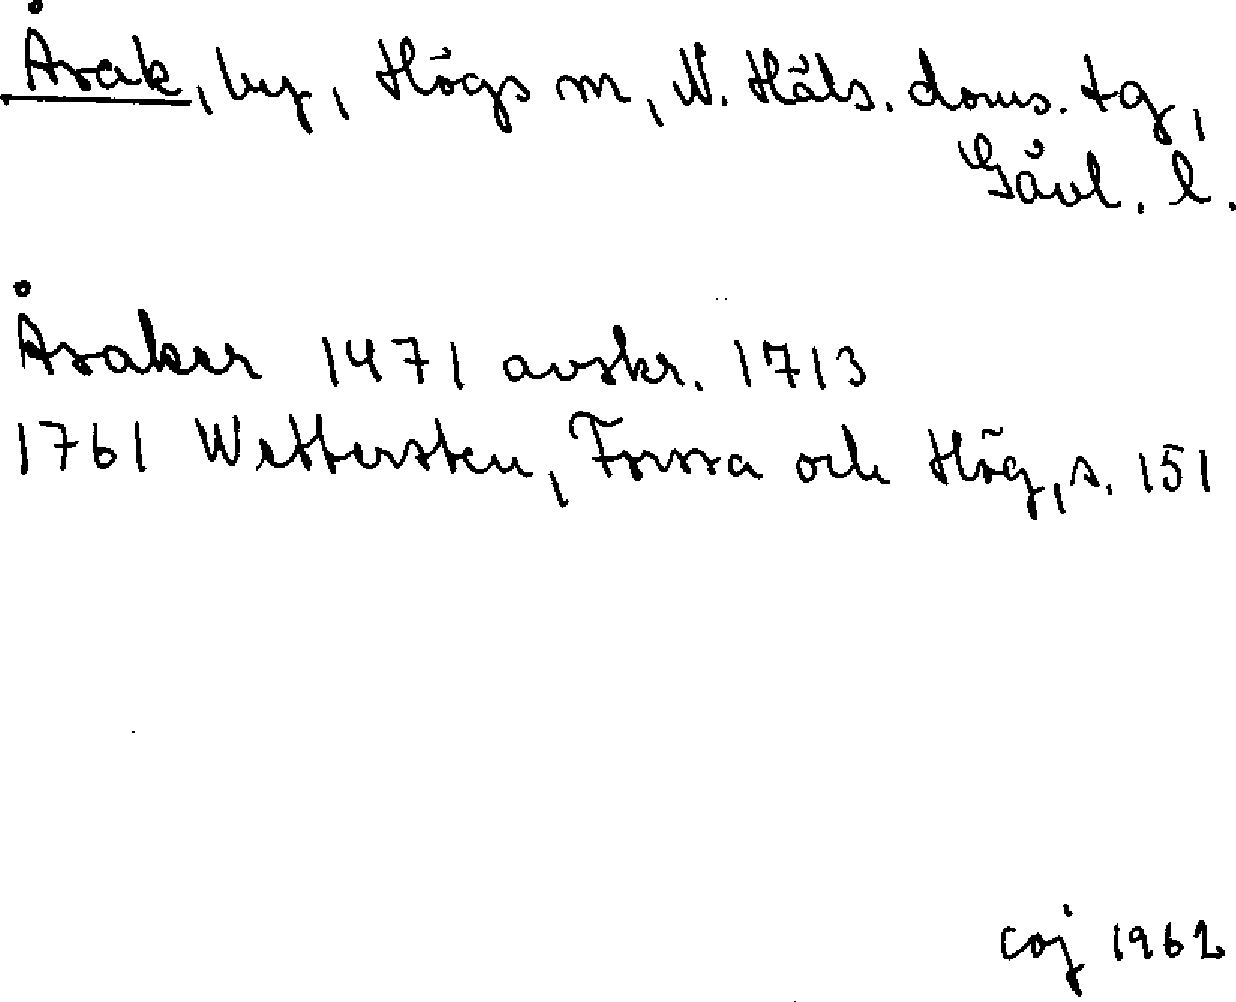 Åsak, by, Högs sn, N. Häls. doms. tg,
Gävl. l.
Åsaker 1471 avskr. 1713
1761 Wettersten, Forssa och Hög, s. 151
coj 1962